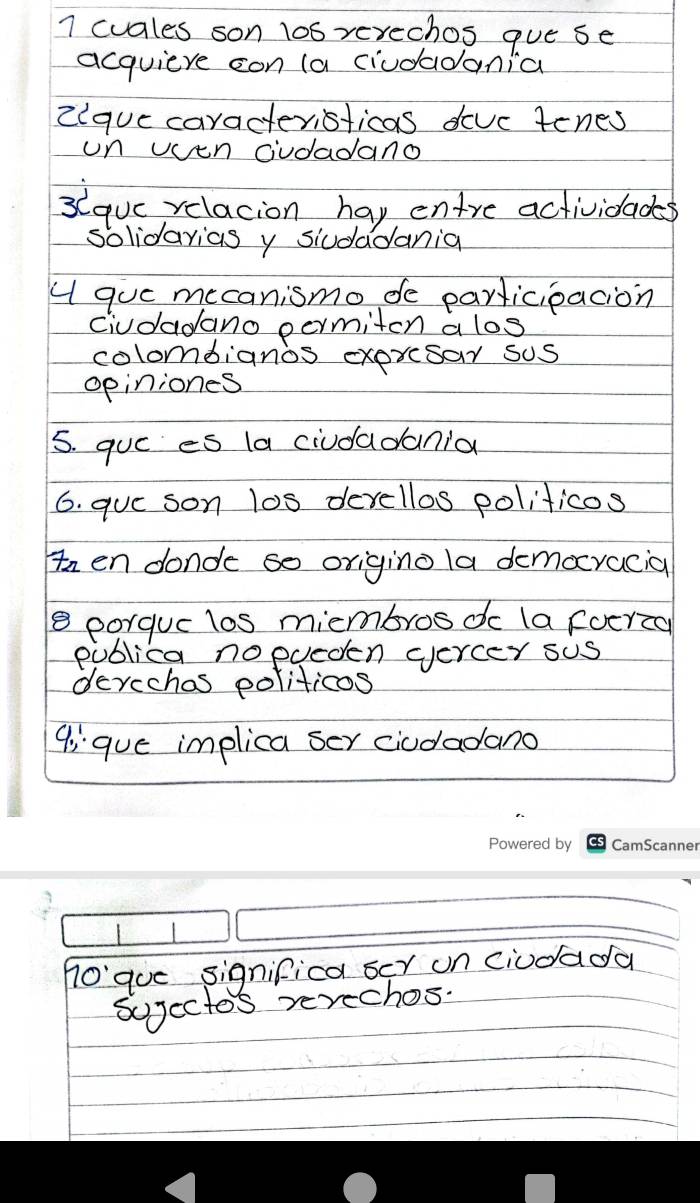 1 cuales son los rerechos que se
acquiere con la ciudadania
2¿que caracteristicas deve tenes
un vuen ciudadano
3¿que relacion hay entre actividades
solidarias y siudadania
4 que mecanismo de participacion
ciudadano permiten a los
colombianos expresar sus
opiniones
5. que es la ciudadania
6. que son los derellos politicos
7 en donde se origino la democracia
8 porque los miembros de la fuerza
publica no pueden ejercer sus
derechos politicos
9. que implica ser ciudadano
Powered by CS CamScanner
10 que significa ser un ciudada
sujectos rerechos.